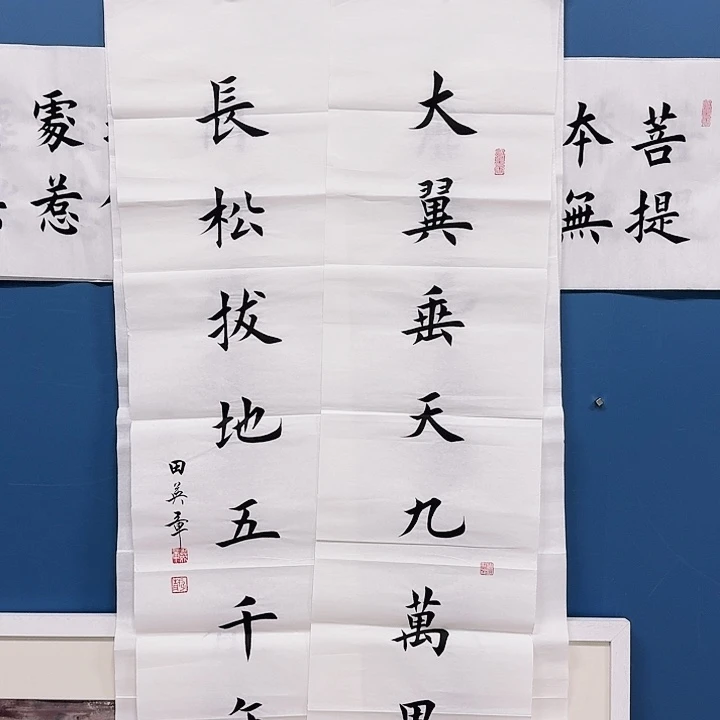 大翼垂天九萬里
長松拔地五千年
田英章
菩提
本無
處
惹